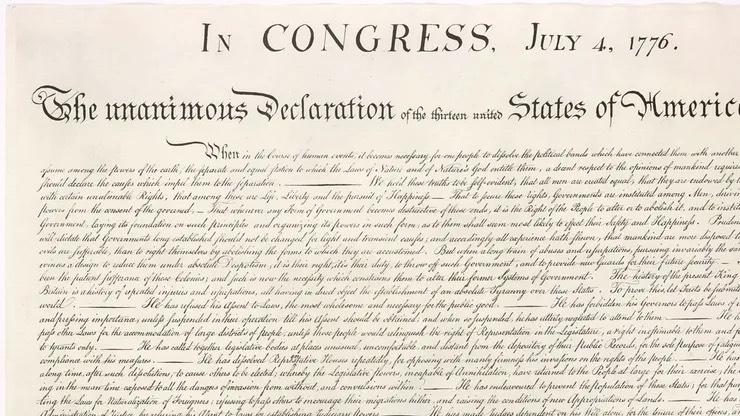 In CONGRESS, July 4, 1776.
The unanimous Declaration of the thirteen united States of America
When in the Course of human events, it becomes necessary for one people to dissolve the political bands which have connected them with another
assume among the powers of the earth, the separate and equal station to which the Laws of Nature and of Nature's God entitle them, a decent respect to the opinions of mankind requires
should declare the causes which impel them to the separation. — We hold these truths to be self-evident, that all men are created equal, that they are endowed by
with certain unalienable Rights, that among these are Life, Liberty and the pursuit of Happiness. — That to secure these rights, Governments are instituted among Men, deriving
powers from the consent of the governed, — That whenever any Form of Government becomes destructive of these ends, it is the Right of the People to alter or to abolish it, and to institute
Government, laying its foundation on such principles and organizing its powers in such form, as to them shall seem most likely to effect their Safety and Happiness. Prudence
will dictate that Governments long established should not be changed for light and transient causes; and accordingly all experience hath shewn, that mankind are more disposed to
evils are sufferable, than to right themselves by abolishing the forms to which they are accustomed. But when a long train of abuses and usurpations, pursuing invariably the same
evinces a design to reduce them under absolute Despotism, it is their right, it is their duty, to throw off such Government, and to provide new Guards for their future security. —
been the patient sufferance of these Colonies; and such is now the necessity which constrains them to alter their former Systems of Government. The history of the present King
Britain is a history of repeated injuries and usurpations, all having in direct object the establishment of an absolute Tyranny over these States. To prove this, let Facts be submitted
world. — He has refused his Assent to Laws, the most wholesome and necessary for the public good. — He has forbidden his Governors to pass Laws of
and pressing importance, unless suspended in their operation till his Assent should be obtained; and when so suspended, he has utterly neglected to attend to them. — He has
pass other Laws for the accommodation of large districts of people, unless those people would relinquish the right of Representation in the Legislature, a right inestimable to them and
to tyrants only. — He has called together legislative bodies at places unusual, uncomfortable, and distant from the depository of their public Records, for the sole purpose of
compliance with his measures. — He has dissolved Representative Houses repeatedly, for opposing with manly firmness his invasions on the rights of the people. — He has
a long time, after such dissolutions, to cause others to be elected; whereby the Legislative powers, incapable of Annihilation, have returned to the People at large for their exercise; the
ing in the mean time exposed to all the dangers of invasion from without, and convulsions within. — He has endeavoured to prevent the population of these States; for that
ting the Laws for Naturalization of Foreigners; refusing to pass others to encourage their migrations hither, and raising the conditions of new Appropriations of Lands. — He